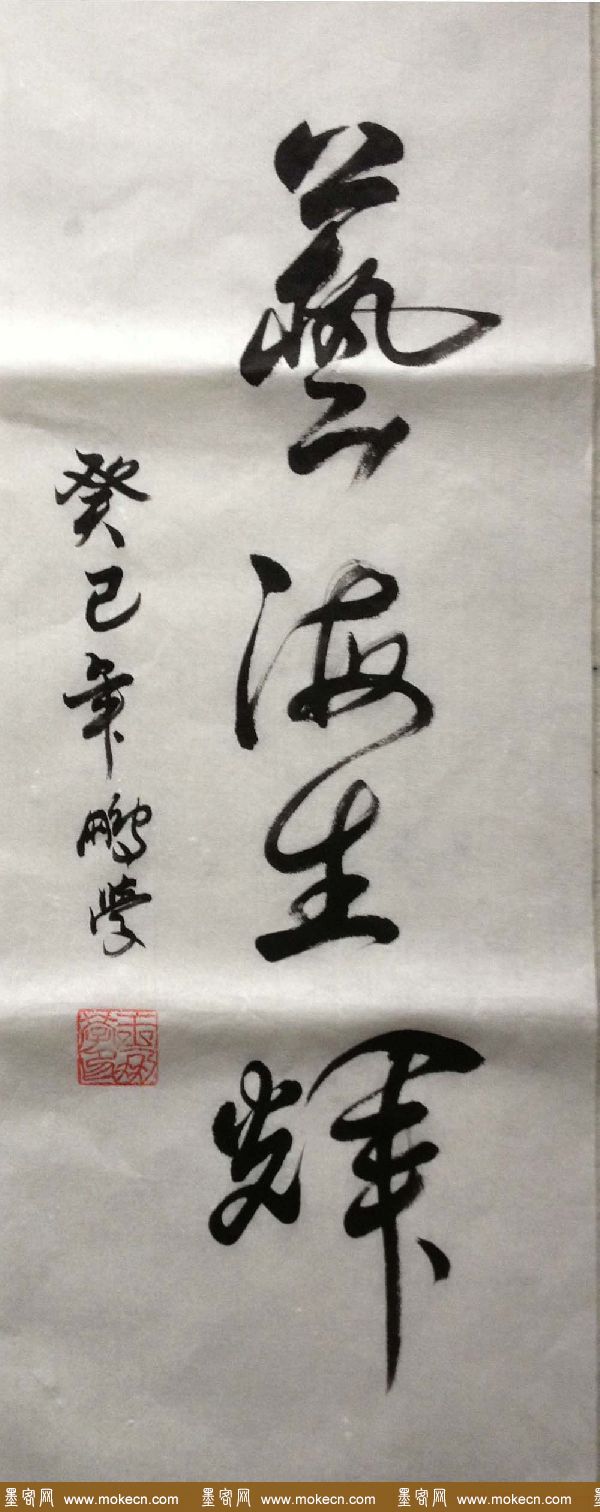 藝海生輝
癸巳年鵬學
墨客网 www.mokecn.com 墨客网 www.mokecn.com 墨客网 www.mokecn.com 墨客网